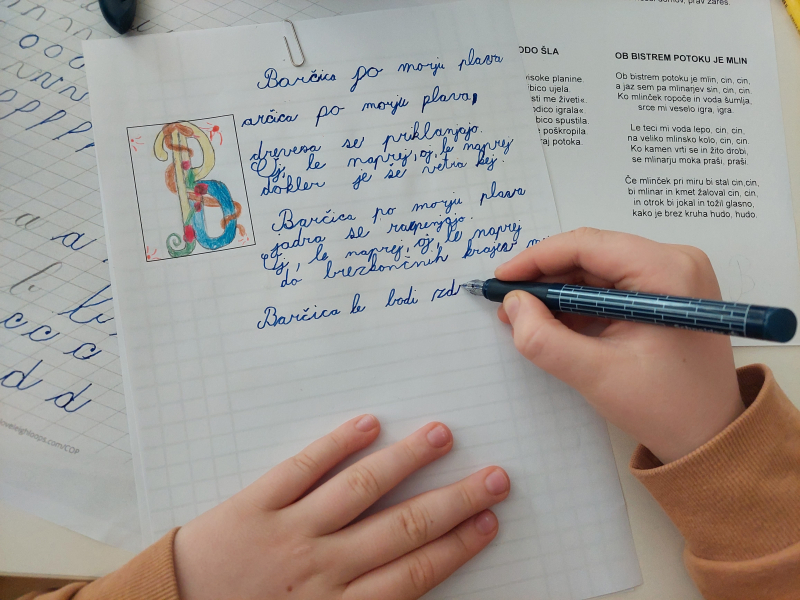 Barčica po morju plava
arčica po morju plava,
drevesa se priklanjajo.
Oj, le naprej, oj, le naprej
dokler je še vetra kej.
Barčica po morju plava
jadra se razpenjajo.
Oj, le naprej, oj, le naprej
do brezkončnih krajev
Barčica le bodi zdr
B
ODO ŠLA
visoke planine.
ujela.
sti me živeti«.
odico igrala«.
bico spustila.
e poškropila.
raj potoka.
prav zares.
OB BISTREM POTOKU JE MLIN
Ob bistrem potoku je mlin, cin, cin,
a jaz sem pa mlinarjev sin, cin, cin.
Ko mlinček ropoče in voda šumlja,
srce mi veselo igra, igra.
Le teci mi voda lepo, cin, cin,
na veliko mlinsko kolo, cin, cin.
Ko kamen vrti se in žito drobi,
se mlinarju moka praši, praši.
Če mlinček pri miru bi stal cin,cin,
bi mlinar in kmet žaloval cin, cin,
in otrok bi jokal in tožil glasno,
kako je brez kruha hudo, hudo.
a a
c c c
d d